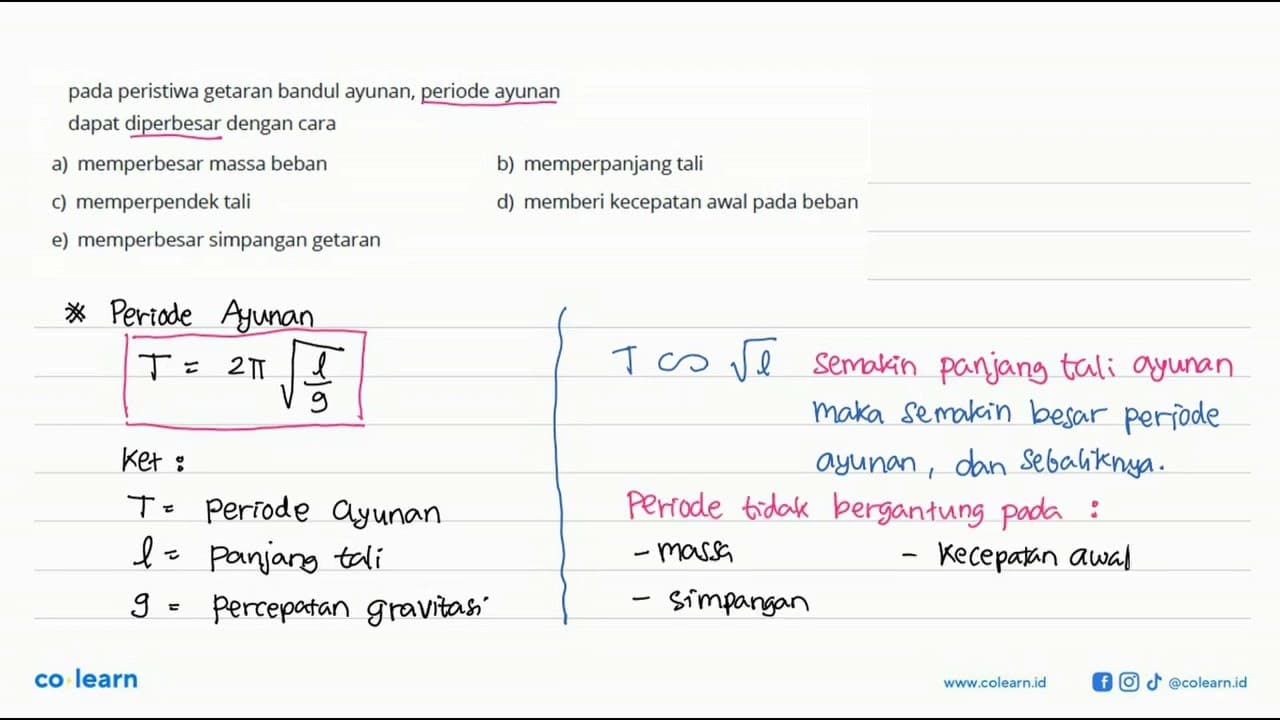 pada peristiwa getaran bandul ayunan, periode ayunan
dapat diperbesar dengan cara
a) memperbesar massa beban
b) memperpanjang tali
c) memperpendek tali
d) memberi kecepatan awal pada beban
e) memperbesar simpangan getaran
* Periode Ayunan
T = 2π √(l/g)
Ket :
T = periode ayunan
l = panjang tali
g = percepatan gravitasi
T ∞ √l semakin panjang tali ayunan
maka semakin besar periode
ayunan, dan sebaliknya.
Periode tidak bergantung pada :
- massa
- kecepatan awal
- simpangan
co learn
www.colearn.id
@colearn.id